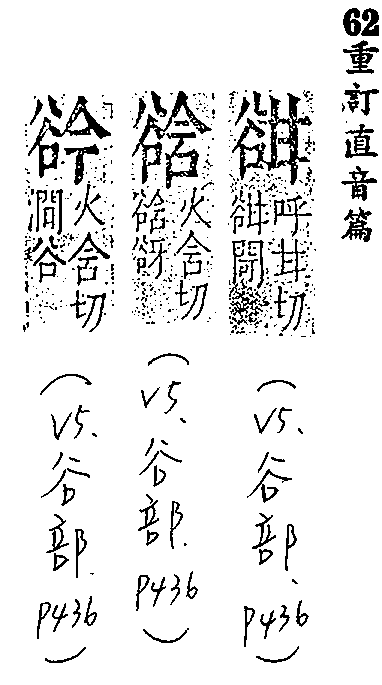 62重訂直音篇
呼甘切
(V5、谷部、P436)
谽
火含切
谽谺
(V5、谷部、P436)
火含切
澗谷
(V5、谷部、P436)